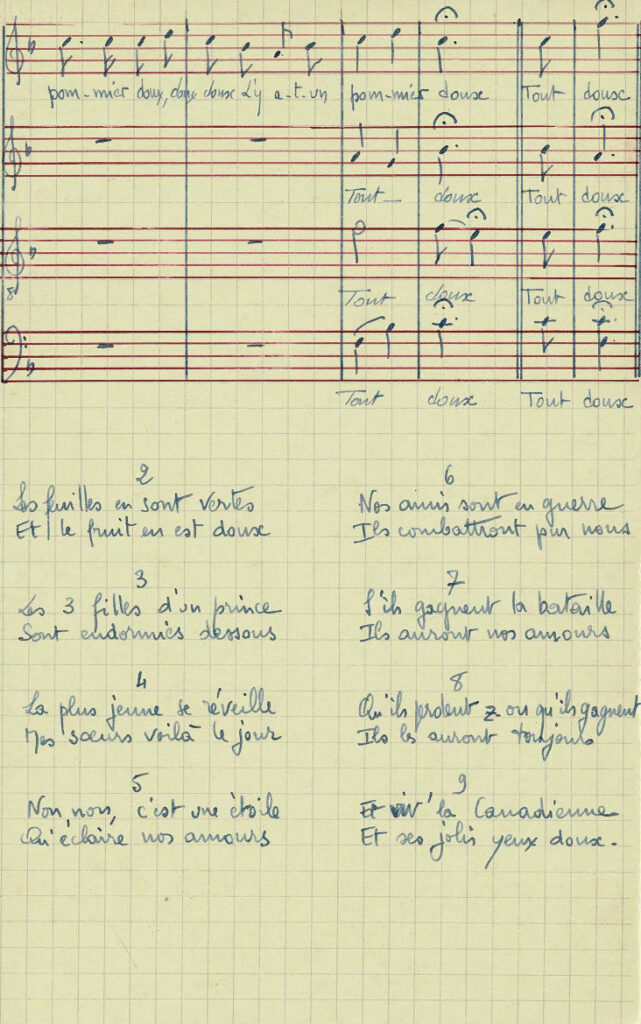 pom-mier doux, doux doux L'y a-t-un pom-mier doux Tout doux
Tout_ doux Tout doux
8
Tout doux Tout doux
Tout doux Tout doux
2
Les feuilles en sont vertes
Et le fruit en est doux
3
Les 3 filles d'un prince
Sont endormies dessous
4
La plus jeune se réveille
Mes sœurs voilà le jour
5
Non non, c'est une étoile
Qu'éclaire nos amours
6
Nos amis sont en guerre
Ils combattront pour nous
7
S'ils gagnent la bataille
Ils auront nos amours
8
Qu'ils perdent z-ou qu'ils gagnent
Ils les auront toujours
9
Et viv' la Canadienne
Et ses jolis yeux doux.